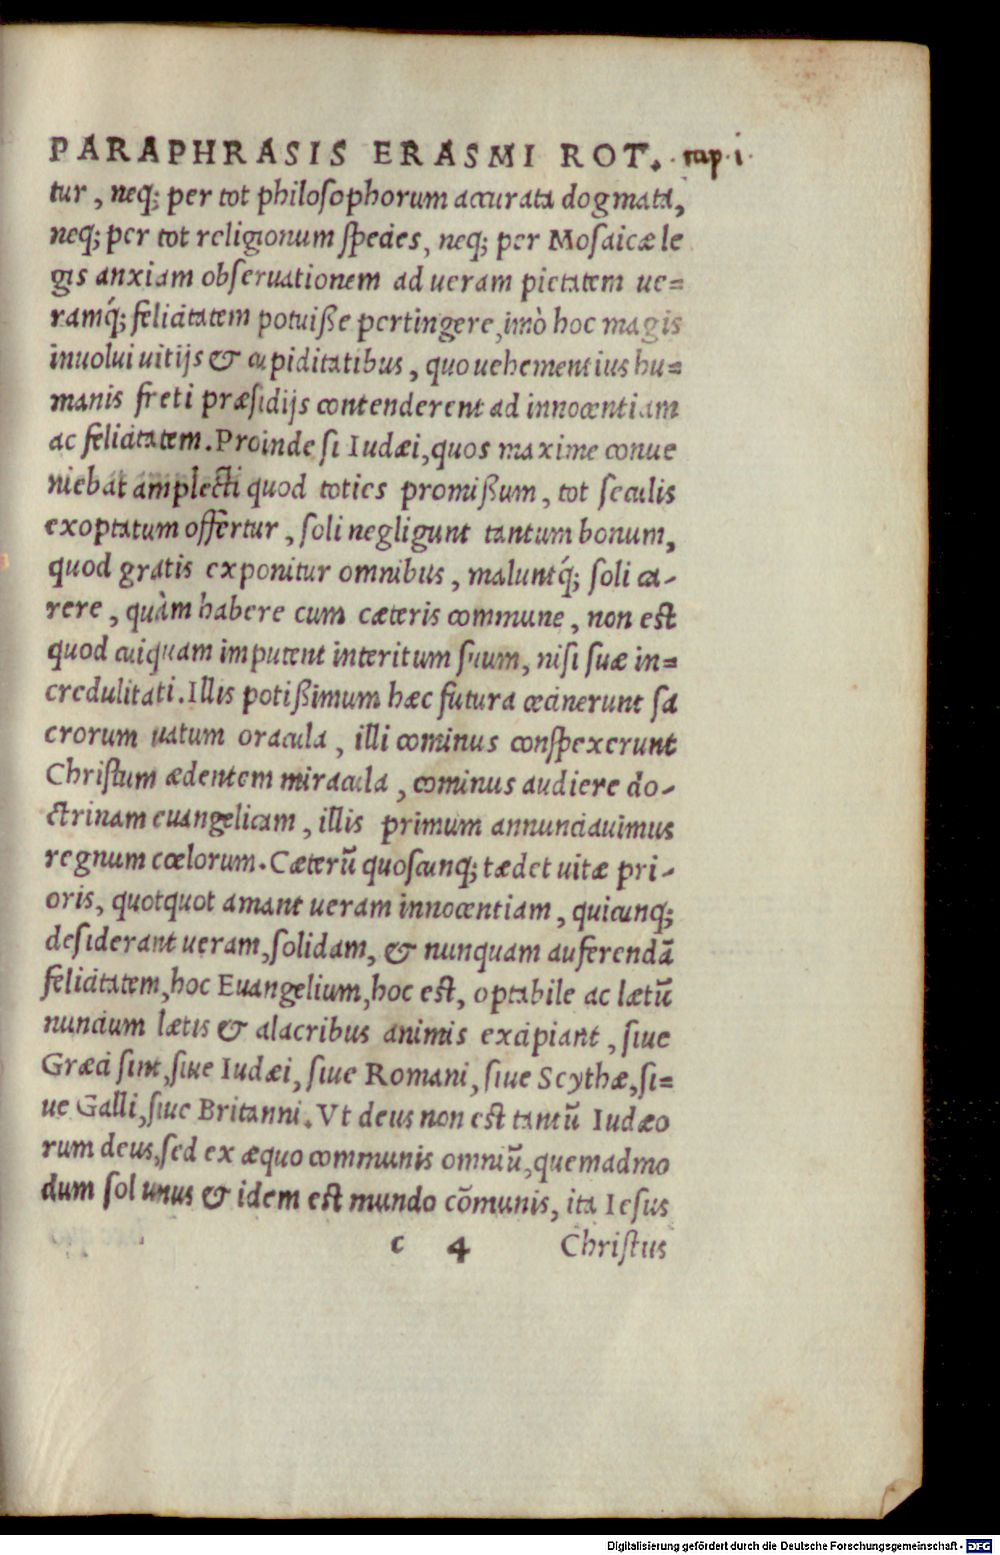 PARAPHRASIS ERASMI ROT. · cap · i ·
tur, neq; per tot philosophorum accurata dogmata,
neq; per tot religionum species, neq; per Mosaicæ le
gis anxiam obseruationem ad ueram pietatem ue=
ramq́; felicitatem potuiße pertingere, imò hoc magis
inuolui uitijs & cupiditatibus, quo uehementius hu=
manis freti præsidijs contenderent ad innocentiam
ac felicitatem. Proinde si Iudæi, quos maxime conue
niebat amplecti quod toties promißum, tot seculis
exoptatum offertur, soli negligunt tantum bonum,
quod gratis exponitur omnibus, maluntq́; soli ca-
rere, quàm habere cum cæteris commune, non est
quod cuiquam imputent interitum suum, nisi suæ in=
credulitati. Illis potißimum hæc futura cecinerunt sa
crorum uatum oracula, illi cominus conspexerunt
Christum ædentem miracula, cominus audiere do-
ctrinam euangelicam, illis primum annunciauimus
regnum cœlorum. Cæterū quoscunq; tædet uitæ pri-
oris, quotquot amant ueram innocentiam, quicunq;
desiderant ueram, solidam, & nunquam auferendā
felicitatem, hoc Euangelium, hoc est, optabile ac lætū
nuncium lætis & alacribus animis excipiant, siue
Græci sint, siue Iudæi, siue Romani, siue Scythæ, si=
ue Galli, siue Britanni. Vt deus non est tantū Iudæo
rum deus, sed ex æquo communis omniū, quemadmo
dum sol unus & idem est mundo cōmunis, ita Iesus
c 4 Christus
Digitalisierung gefördert durch die Deutsche Forschungsgemeinschaft - DFG